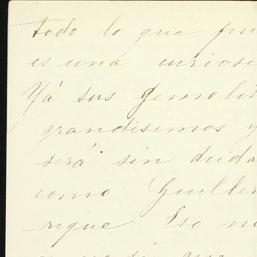 todo lo que
es una curiosi
Ya sus gemelit
grandisimos y
será sin duda
como Guiller
rique. Eso no